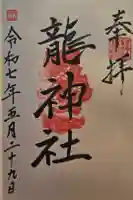 奉拝
龍神社
令和七年五月二十九日